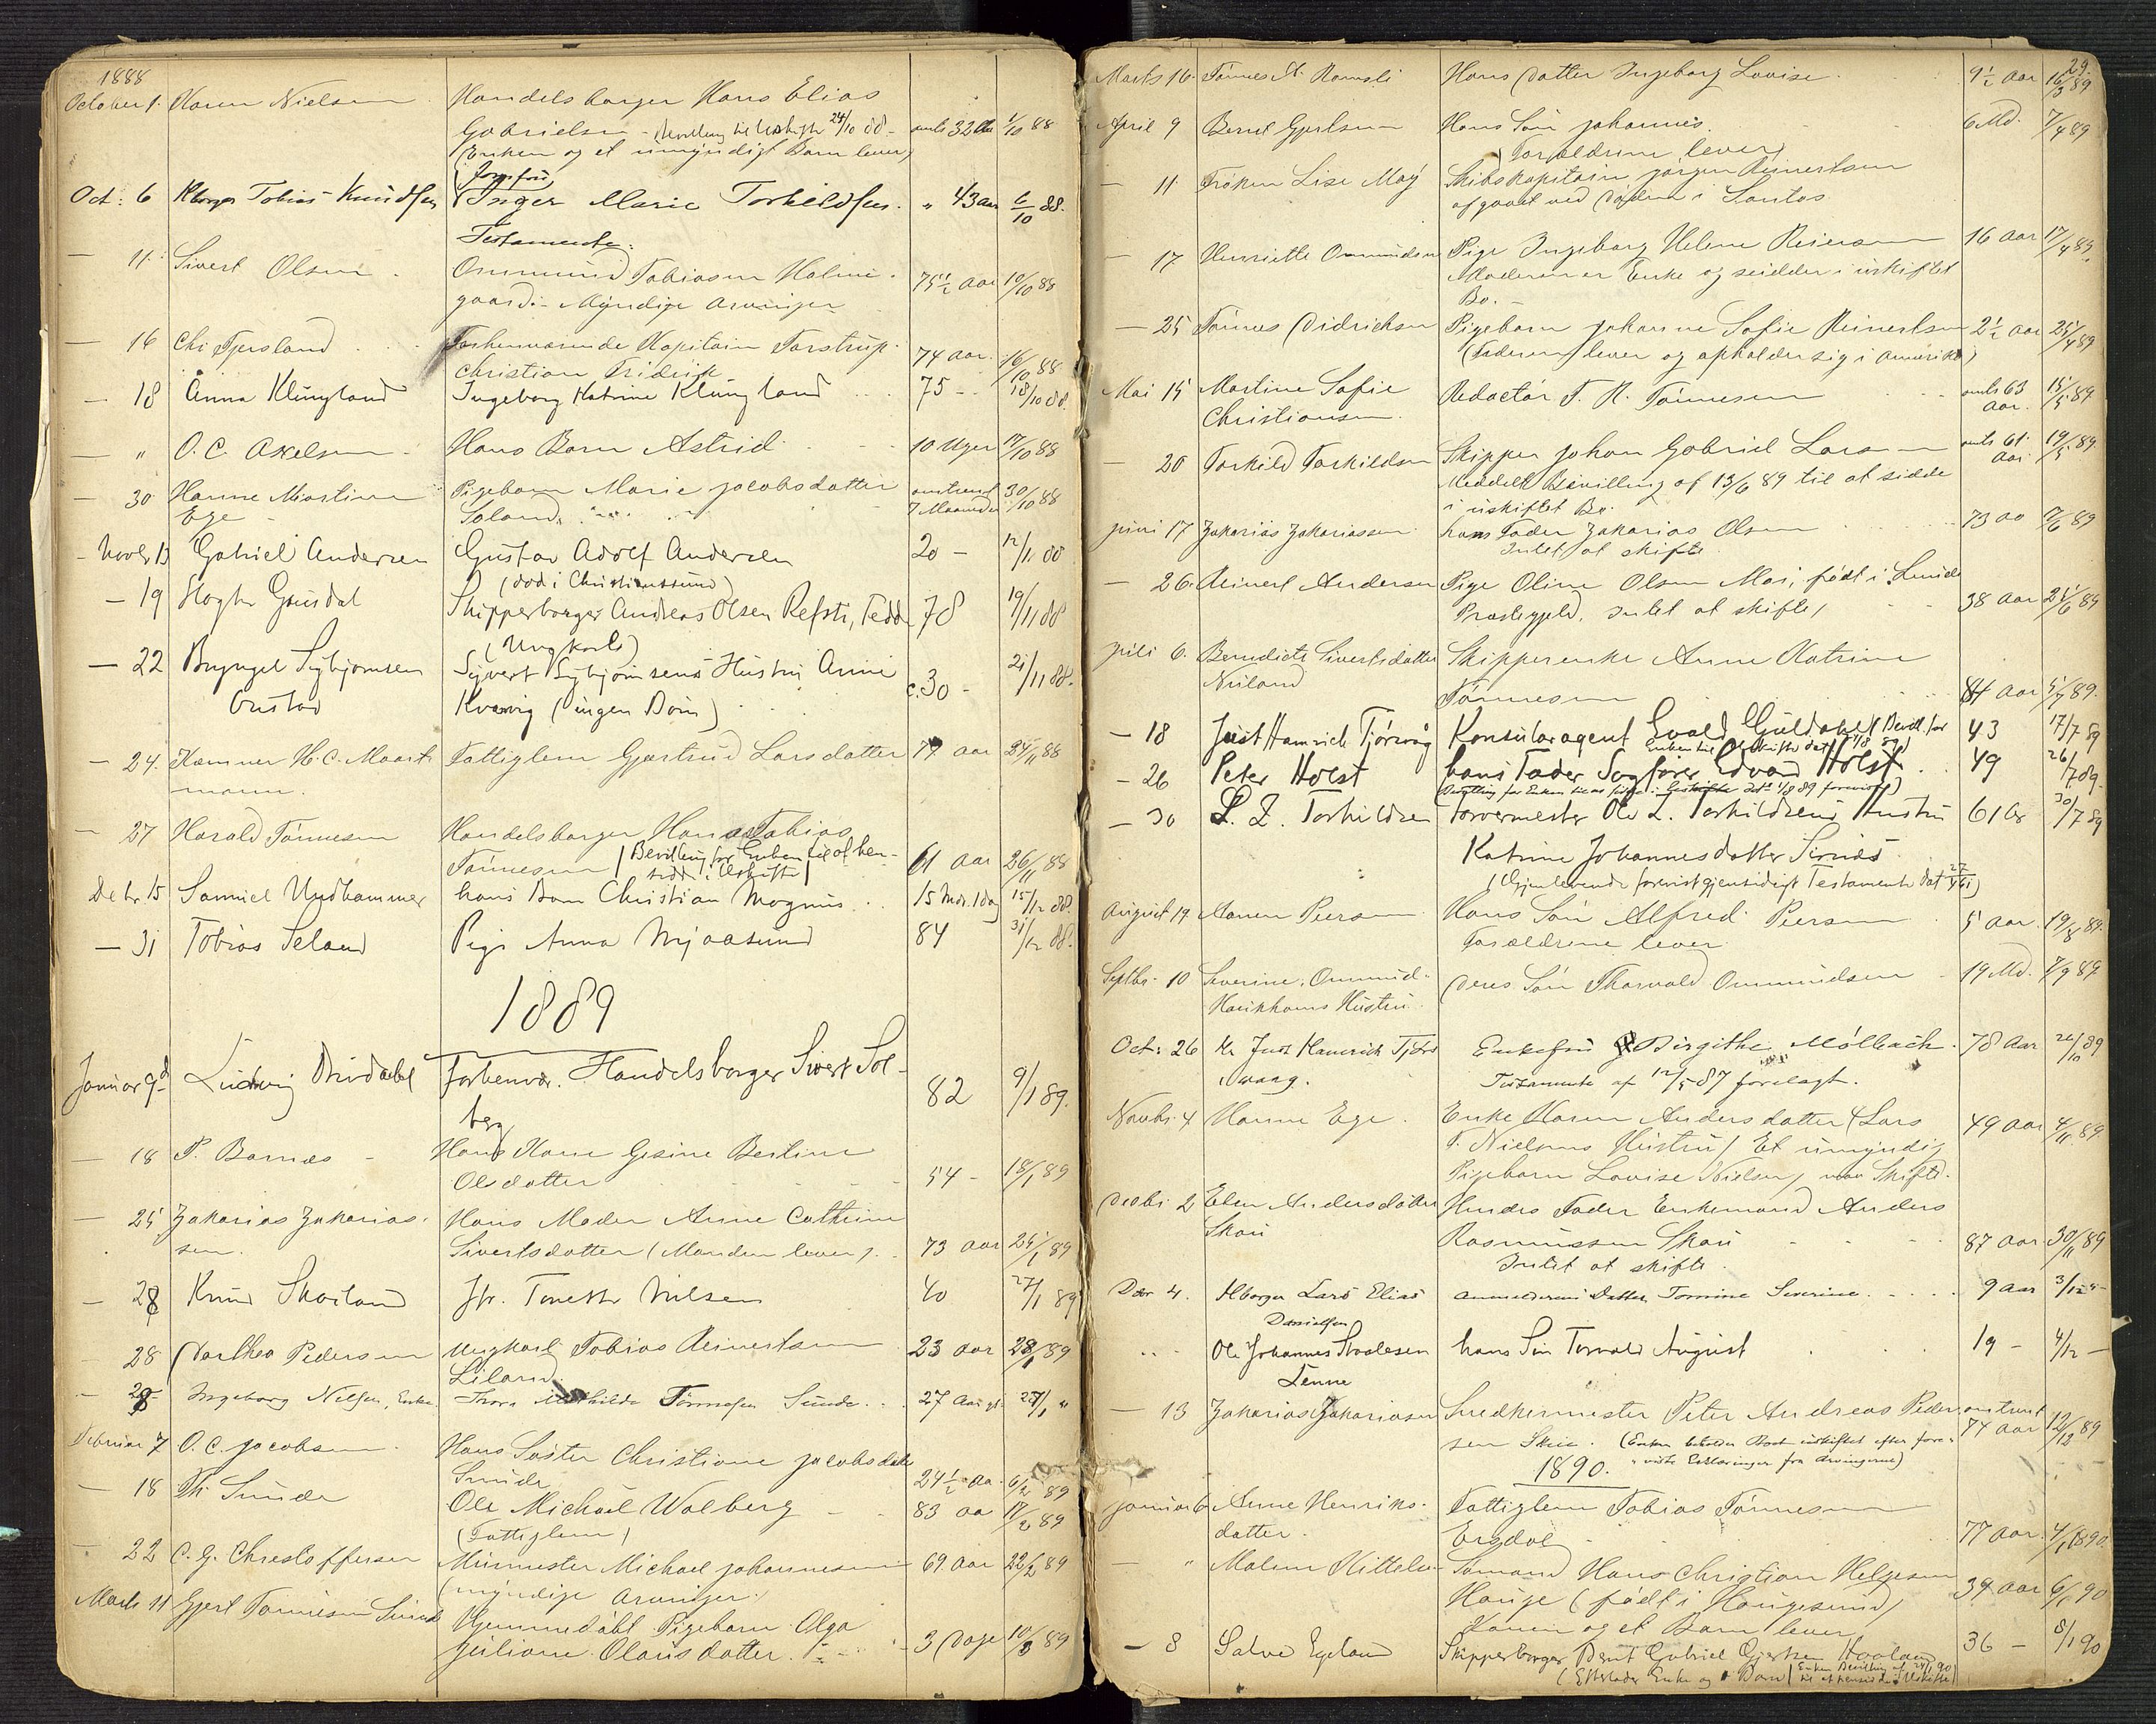 1888
October 1. Karen Nielsen Handelsborger Hans Elias
Gabrielsen - Bevilling til Uskifte 24/10 88 - omtr 32 Aar 1/10 88
(Enken og et umyndigt Barn lever)
(Jomfru)
Oct: 6 Hborger Tobias Knudsen Inger Marie Torkildsen. " 43 aar 6/10 88.
Testamente.
— 11. Sivert Olsen Ommund Tobiassen Holme-
gaard. - Myndige Arvinger 75½ aar 10/10 88
— 16 Chr Tjersland Forhenværende Kapitain Torstrup
Christian Fridrik 74 aar 16/10 88
— 18 Anna Klungland Ingeborg Katrine Klungland 75 - 18/10 88.
— " O. C. Axelsen Hans Barn Astrid 10 Uger 17/10 88
— 30 Hanne Martine Pigebarn Marie Jacobsdatter omtrent 30/10 88
Ege Soland 7 Maaneder
- Novbr 13 Gabriel Andersen Gustav Adolf Andersen 20 - 12/11 88
(død i Christianssund)
— 19 Skipperborger Andreas Olsen Refsti, Fedde 78 19/11 88
(Ungkarl)
— 22 Bryngel Sigbjørnsen Syvert Sigbjørnsens Hustru Anne
Gustad Kvavig (ingen Børn) c. 30 - 21/11 88.
— 24. Kæmner H. C. Maart- Fattiglem Gjertrud Larsdatter 77 aar 24/11 88
mann.
— 27 Harald Tønnesen Handelsborger Hans Tobias
Tønnesen (Bevilling for Enken til at hen-
sidde i Uskifte) 61 aar 26/11 88
Debr. 15 Samuel Undhammer hans Barn Christian Magnus 15 Mdr. 1 Dag 15/12 88.
— 31 Tobias Seland Pige Anna Mjaasund 84 31/12 88.
1889
Januar 9d Ludvig Drivdahl Forhenvær. Handelsborger Sivert Sol-
berg 82 9/1 89.
— 18 P. Barnes - Hans Kone Gesine Bertine
Olsdatter 54 - 18/1 89
— 25 Zakarias Zakarias- Hans Moder Anne Cathrine
sen. Sivertsdatter (Manden lever). 73 aar 24/1 89
— 28 Knud Skoland Jfr. Tonette Nilsen 40 27/1 89
— 28 Dorthea Pedersen Ungkarl Tobias Reinertsen 23 aar 28/1 89
Liland
— 28 Ingeborg Nilsen, Enke. Thora Mathilde Tønnesen Sunde. 27 Aar gl. 27/1 "
Februar 7 O. C. Jacobsen Hans Søster Christiane Jacobsdatter
Sunde 24½ aa. 6/2 89
— 18 Th Sunde Ole Michael Walberg - 83 aa 17/2 89
(Fattiglem)
— 22 C. G. Christoffersen Murmester Michael Johannesen 69 aar 22/2 89
(myndige Arvinger)
Marts 11 Gjert Tønnesen Sunde Hjemmedøbt Pigebarn Olga
Juliane Olausdatter. 3 Dage 10/3 89
29.
Marts 16. Tønnes A. Ramsli Hans Datter Ingeborg Lovise 9½ aar 16/3 89
April 9 Bernt Gjertsen Hans Søn Johannes. 6 Md. 7/4 89
(Forældrene lever)
— 11. Frøken Lise May Skibskapitain Jørgen Reinertsen
afgaaet ved Døden i Santos
— 17 Henriette Ommundsen Pige Ingeborg Helene Reiersen 16 aar 17/4 89
Moderen er Enke og sidder i uskiftet
Bo. -
— 25 Tønnes Didriksen Pigebarn Johanne Sofie Reinertsen 2½ aar 25/4 89
(Faderen lever og opholder sig i Amerika)
Mai 15 Martine Sofie Redactør T. R. Tønnesen omtr 63 15/5 89
Christiansen. aar.
— 20 Torkild Torkildsen Skipper Johan Gabriel Larsen omtr 61 19/5 89
Meddelt Bevilling af 13/6 89 til at sidde aar.
i uskiftet Bo.
Juni 17 Zakarias Zakariassen hans Fader Zakarias Olsen 73 aa 7/6 89
Intet at skifte
— 26. Reinert Andersen Pige Oline Olsen Moi, født i Lunde
Præstegjeld. Intet at skifte, 38 aar 25/6 89
Juli 6. Benedicte Sivertsdatter Skipperenke Anne Katrine
Neiland Tønnesen 84 aar 5/7 89.
— 18 Just Hamrich Tjørsvaag Konsularagent Evald Guldagel Bevill. for 43 17/7 89
Enken til Uskifte dat. 1/8 89)
— 26 Peter Holst hans Fader Sagfører Edvard Holst 49 26/7 89.
(Bevilling for Enken til at sidde i Uskifte dat. 1/8 89 forevist)
— 30 L. Z. Torkildsen Farvermester Ole Z. Torkildsens Hustru 61 Aar 30/7 89
Katrine Johannesdatter Sirnes
(Gjenlevende forevist gjensidigt Testamente dat. 27/4 61)
August 19. Aanen Peersen Hans Søn Alfred Peersen 5 aar. 19/8 89.
Forældrene lever
Septbr. 10 Severine Ommund- Deres Søn Thorvald Ommundsen 19 Md. 7/9 89
Haukhoms Hustru
Oct: 26 Hr Just Hamrich Tjørs- Enkefru Birgithe Mölbach 78 Aar 26/10 89
vaag. Testamente af 12/5 87 forelagt.
Novbr. 4 Hanne Ege. Enke Karen Andersdatter (Lars 49 aar 4/11 89.
P. Nielsens Hustru) Et umyndig
Pigebarn Lovise Nielsen, Skifte.
Decbr. 2 Elen Andersdatter Hendes Fader Enkemand Anders
Skau Rasmussen Skau 87 aar 30/11 89
Intet at skifte.
Dcbr 4. Hborger Lars Elias Anmelderens Datter Tomine Severine 9 aar 3/12 -
Danielsen
" - Ole Johannes Staalesen hans Søn Torvald August 19 - 4/12 —
Lenne
— 13 Zakarias Zakariasen Snedkermester Peter Andreas Peder- omtrent
sen Skie. (Enken beholder Boet uskiftet efter fore- 74 aar 12/12 89
viste Erklæringer fra Arvingerne)
1890.
Januar 6 Anne Henriks- Fattiglem Tobias Tønnesen
datter. Ersdal 77 aar. 4/1 1890.
— " Malene Kittelsen Sømand Hans Christian Helgesen
Hauge (født i Haugesund) 39 aar 6/1 90
Konen og et Barn lever
— 8 Salve Egeland Skipperborger Bernt Gabriel Gjertsen Haaland 36 - 8/1 90
(Efterlader Enke og Børn) Enken Bevilling af 24/1 90
til at hensidde i Uskifte)